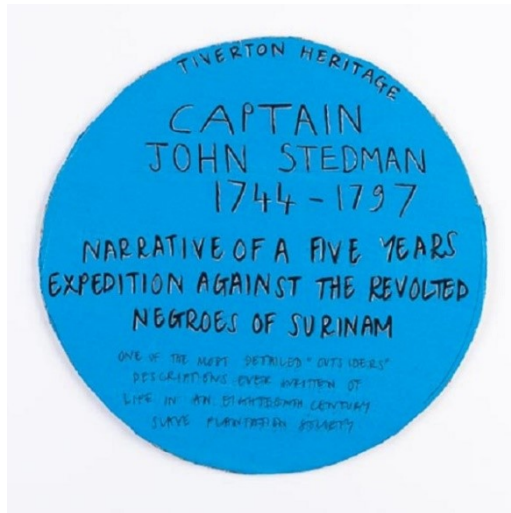 TIVERTON HERITAGE
CAPTAIN
JOHN STEDMAN
1744 - 1797
NARRATIVE OF A FIVE YEARS
EXPEDITION AGAINST THE REVOLTED
NEGROES OF SURINAM
ONE OF THE MOST DETAILED "OUTSIDERS"
DESCRIPTIONS EVER WRITTEN OF
LIFE IN AN EIGHTEENTH CENTURY
SLAVE PLANTATION SOCIETY